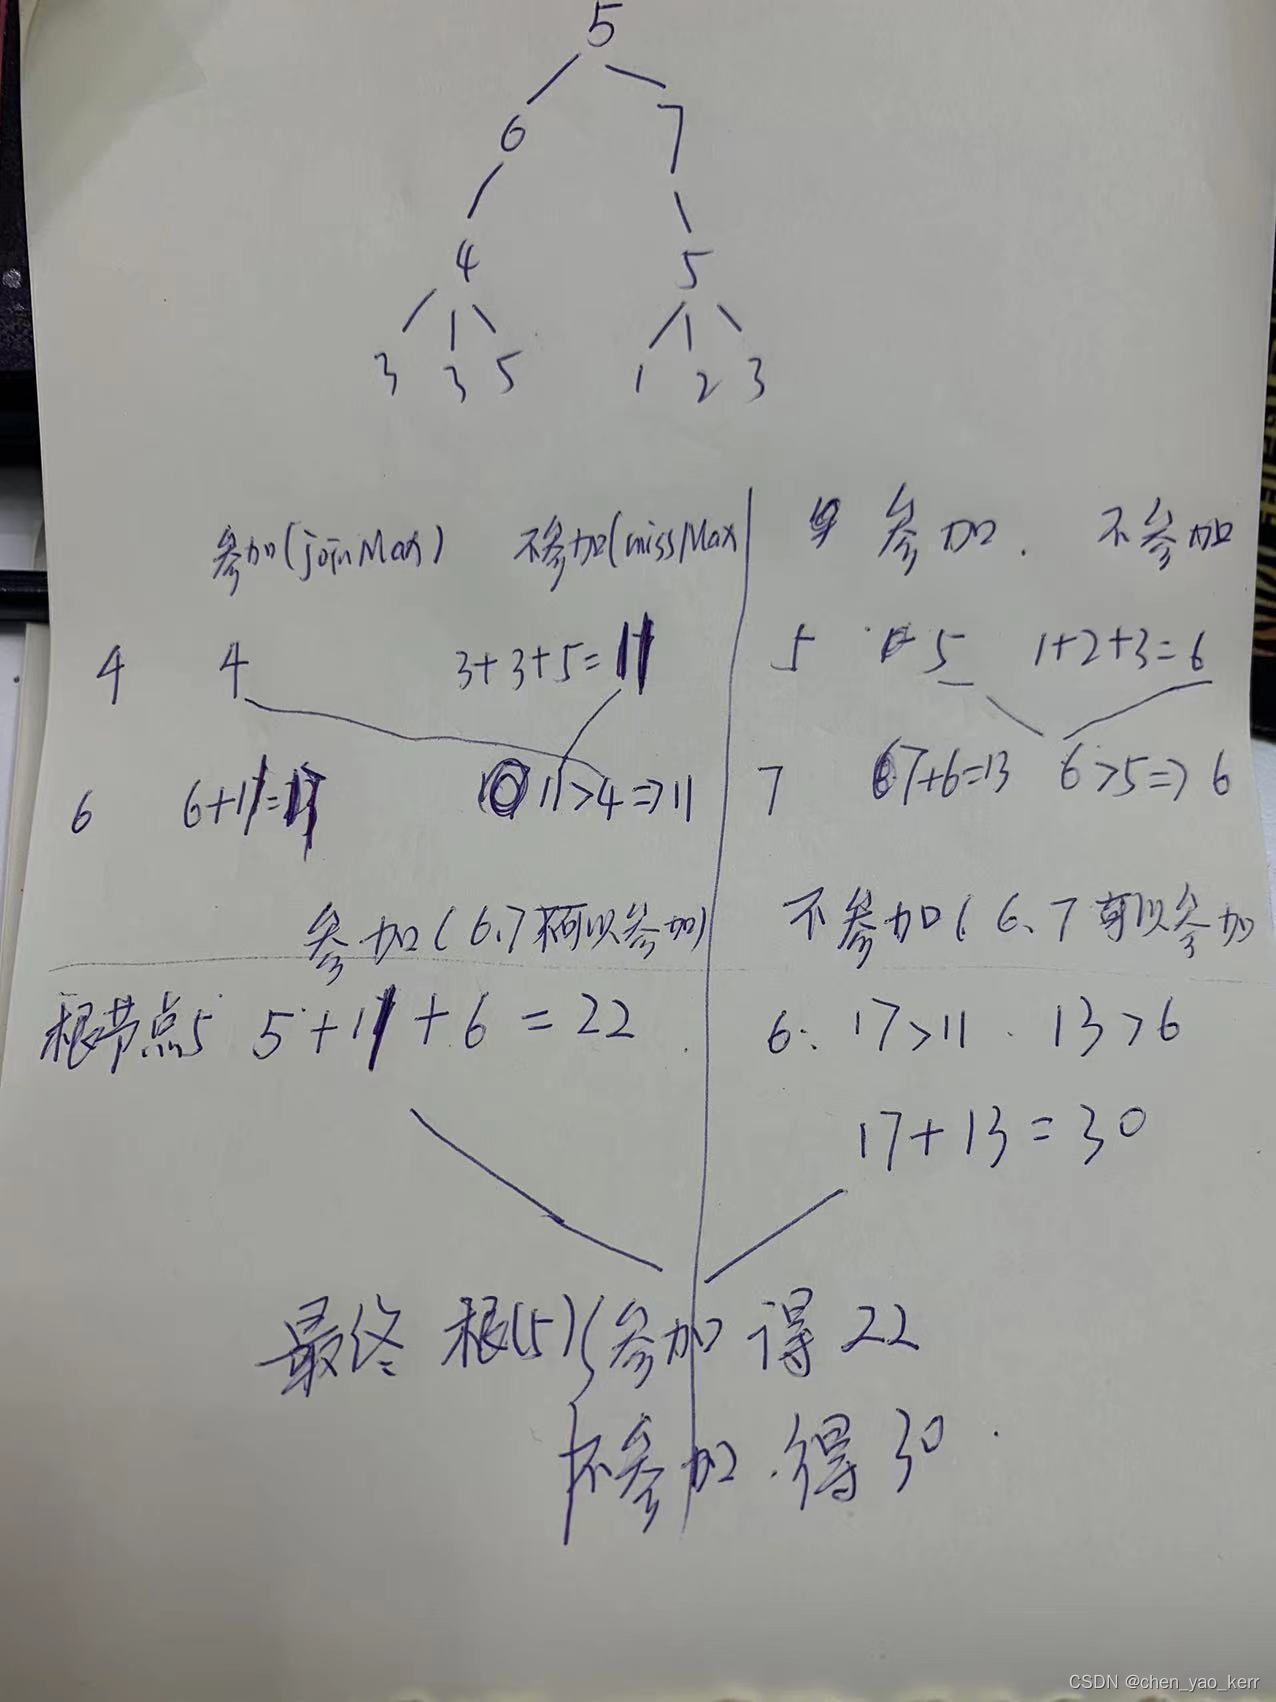 5
6 7
4 5
3 3 5 1 2 3
参加(joinMax) 不参加(missMax 参加. 不参加
4 4 3+3+5=11 5 5 1+2+3=6
6 6+11=17 11>4=>11 7 7+6=13 6>5=>6
参加(6.7不可以参加) 不参加(6、7可以参加
根节点5 5+11+6=22 6: 17>11 . 13>6
17+13=30
最终 根(5) 参加 得22
不参加.得30.
CSDN @chen_yao_kerr